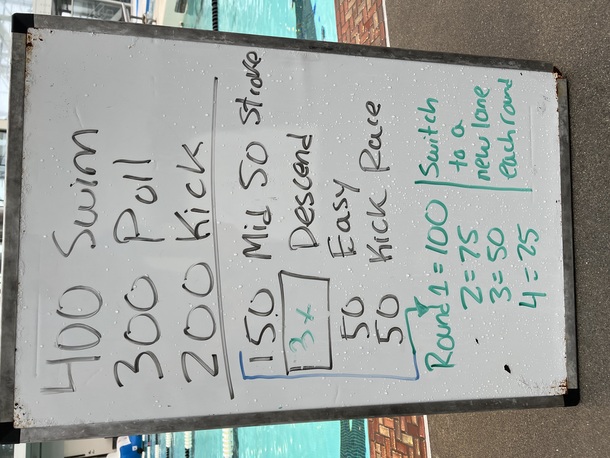 400 Swim
300 Pull
200 Kick
150 Mid 50 Stroke
3x Descend
50 Easy
50 Kick Race
Round 1 = 100
2 = 75
3 = 50
4 = 25
Switch
to a
new lane
each round